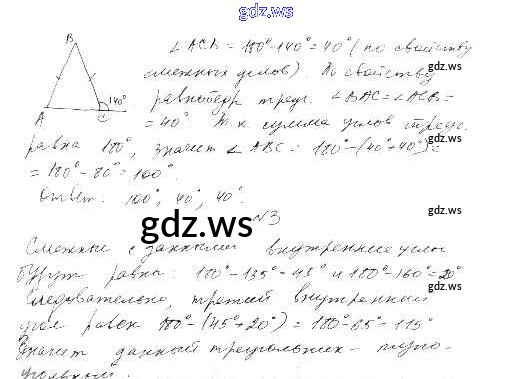 gdz.ws
B
∠ACB = 180°-140° = 40° (по свойству
смежных углов). По свойству
gdz.ws
140°
равнобедр треуг. ∠BAC = ∠ACB =
A
C
= 40° Т.к сумма углов треуг.
gdz.ws
равна 180°, значит ∠ABC = 180°-(40°+40°)=
= 180°-80° = 100°.
Ответ: 100°, 40°, 40°.
gdz.ws
gdz.ws
N3
Смежные с данными внутренние углы
gdz.ws
будут равны: 180°-135°=45° и 180°-160°=20°
Следовательно, третий внутренний
gdz.ws
угол равен 180°-(45°+20°) = 180°-65°=115°
Значит данный треугольник - тупо-
gdz.ws
угольный.